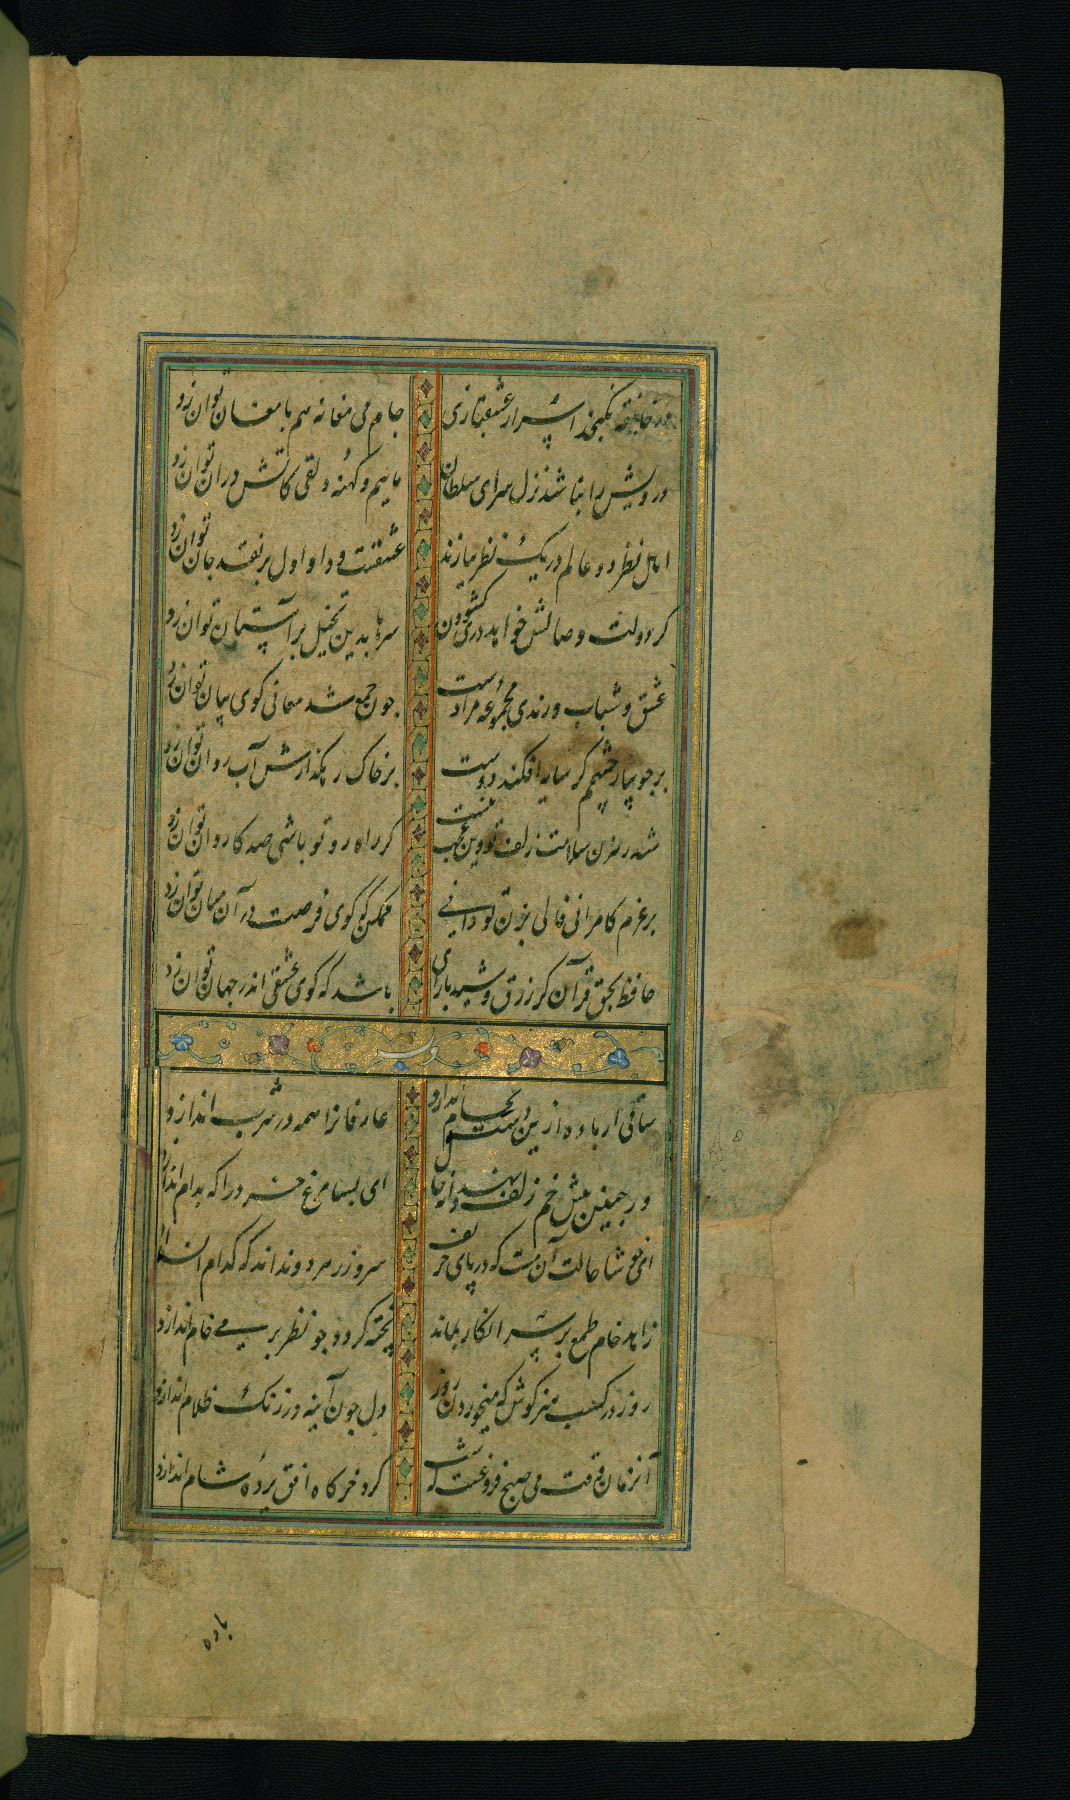 در خانقه نکنجد اسرار عشقبازی جام می مغانه هم با مغان توان زد
درویش را نباشد نزل سرای سلطان ماییم و کهنه دلقی کاتش دران توان زد
اهل نظر دو عالم در یک نظر ببازند عشقست و داو اول بر نقد جان توان زد
کر دولت وصالش خواهد دری کشودن سرها بدین تخیل بر آستان توان زد
عشق و شباب و رندی مجموعه مرادست جون جمع شد معانی کوی بیان توان زد
بر جویبار جشمم کر سایه افکند دوست بر خاک رهکذارش آب روان توان زد
شد رهزن سلامت زلف تو وین عجب نیست کر راه رو تو باشی صد کاروان توان زد
بر عزم کامرانی فالی بزن تو دانی ممکن که کوی فرصت در آن میان توان زد
حافظ بحق قرآن کز زرق و شید باز آی باشد که کوی عشقی اندر جهان توان زد
وله
ساقی ار باده ازین دست بجام اندازد عارفانرا همه در شرب اندازد
ور جنین بیش خم زلف نهد دانه خال ای بسا مرغ خرد را که بدام اندازد
ای خوشا حالت آن مست که در پای حریف سر و زر هر دو نداند که کدام اندازد
زاهد خام طمع بر سر انکار بماند پخته کردد جو نظر بر می خام اندازد
روز در کسب هنر کوش که می خوردن روز دل جون آینه در زنک ظلام اندازد
آنزمان وقت می صبح فروغست که شب کرد خرکاه افق پرده شام اندازد
باده